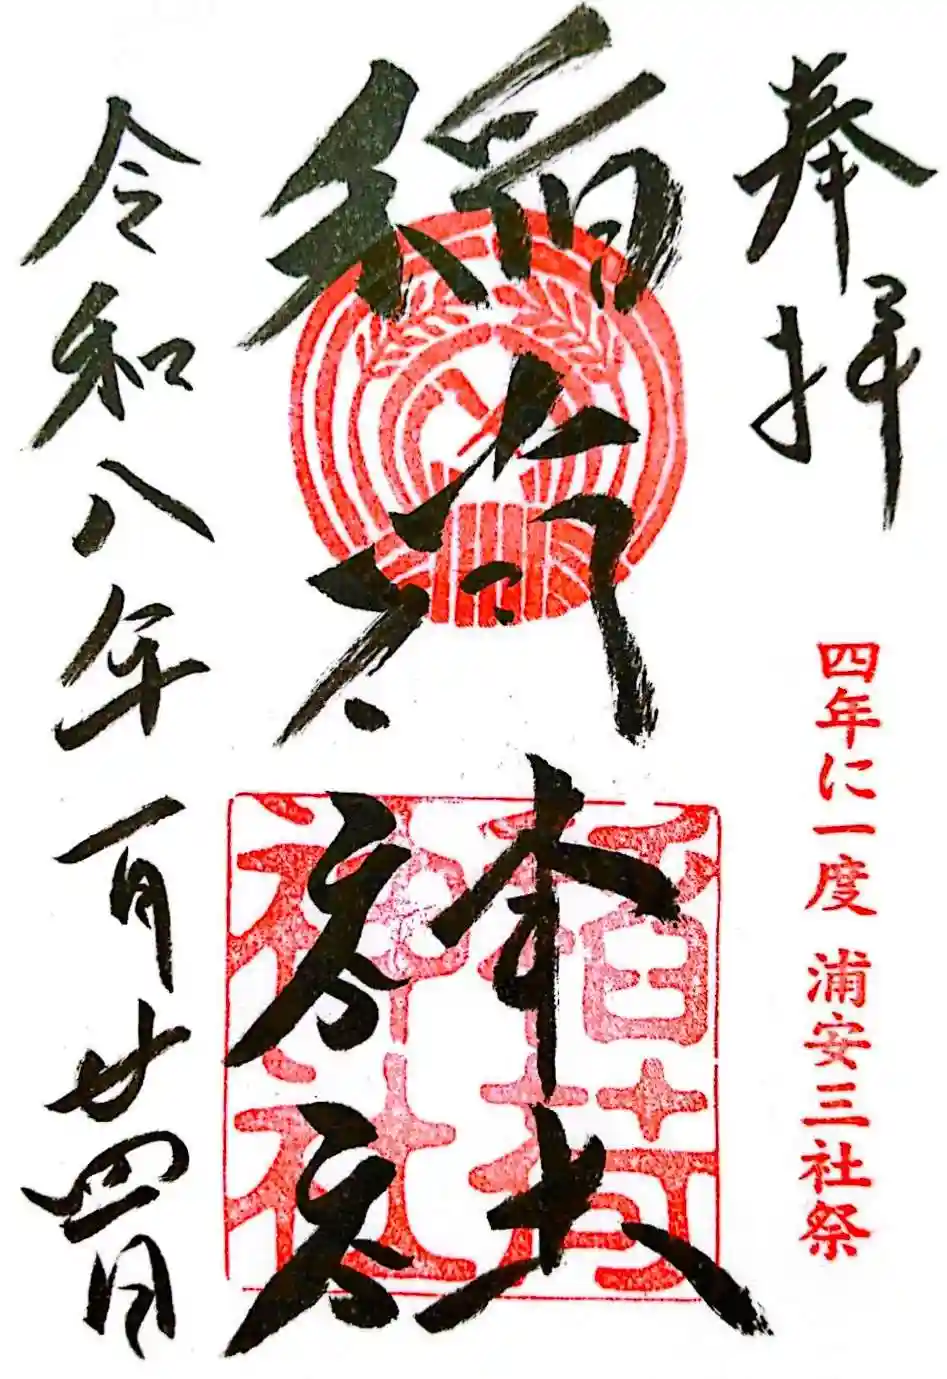 奉拝
四年に一度 浦安三社祭
稲荷神社
稲荷神社
令和八年一月廿四日